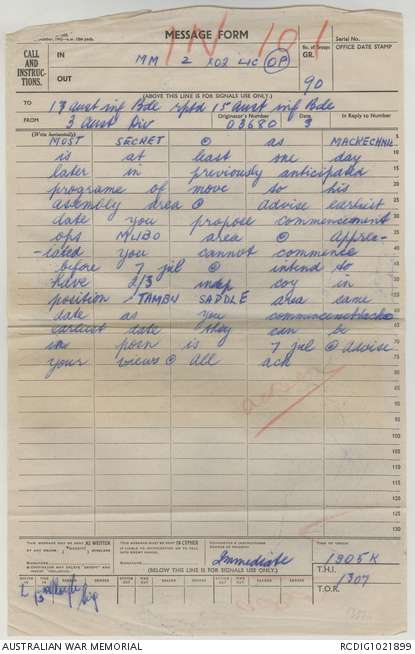 MESSAGE FORM
IN 101
Serial No.
CALL AND INSTRUC- TIONS.
IN
MM 2 X02 LIC OP
No. of Groups
GR.
OFFICE DATE STAMP
OUT
90
(ABOVE THIS LINE IS FOR SIGNALS USE ONLY.)
TO 17 Aust inf Bde rptd 15 Aust inf Bde
FROM 3 Aust Div
Originator's Number 03680
Date 3
In Reply to Number
(Write horizontally)
MOST SECRET @ as MACKECHNIE
is at least one day 5
later in previously anticipated 10
programe of move to his 15
assembly area @ advise earliest 20
date you propose commencement 25
ops MUBO area @ Apprec- 30
-iated you cannot commence 35
before 7 jul @ intend to 40
have 2/3 indep coy in 45
position TAMBU SADDLE area same 50
date as you commence attacks 55
earliest date they can be 60
in posn is 7 jul @ advise 65
your views @ all ack 70
75
80
85
90
95
100
105
110
115
120
125
130
THIS MESSAGE MAY BE SENT AS WRITTEN
THIS MESSAGE MUST BE SENT IN CYPHER
Immediate
TIME OF ORIGIN
1305K
(BELOW THIS LINE IS FOR SIGNALS USE ONLY.)
T.H.I. 1307
T.O.R.
AUSTRALIAN WAR MEMORIAL
RCDIG1021899